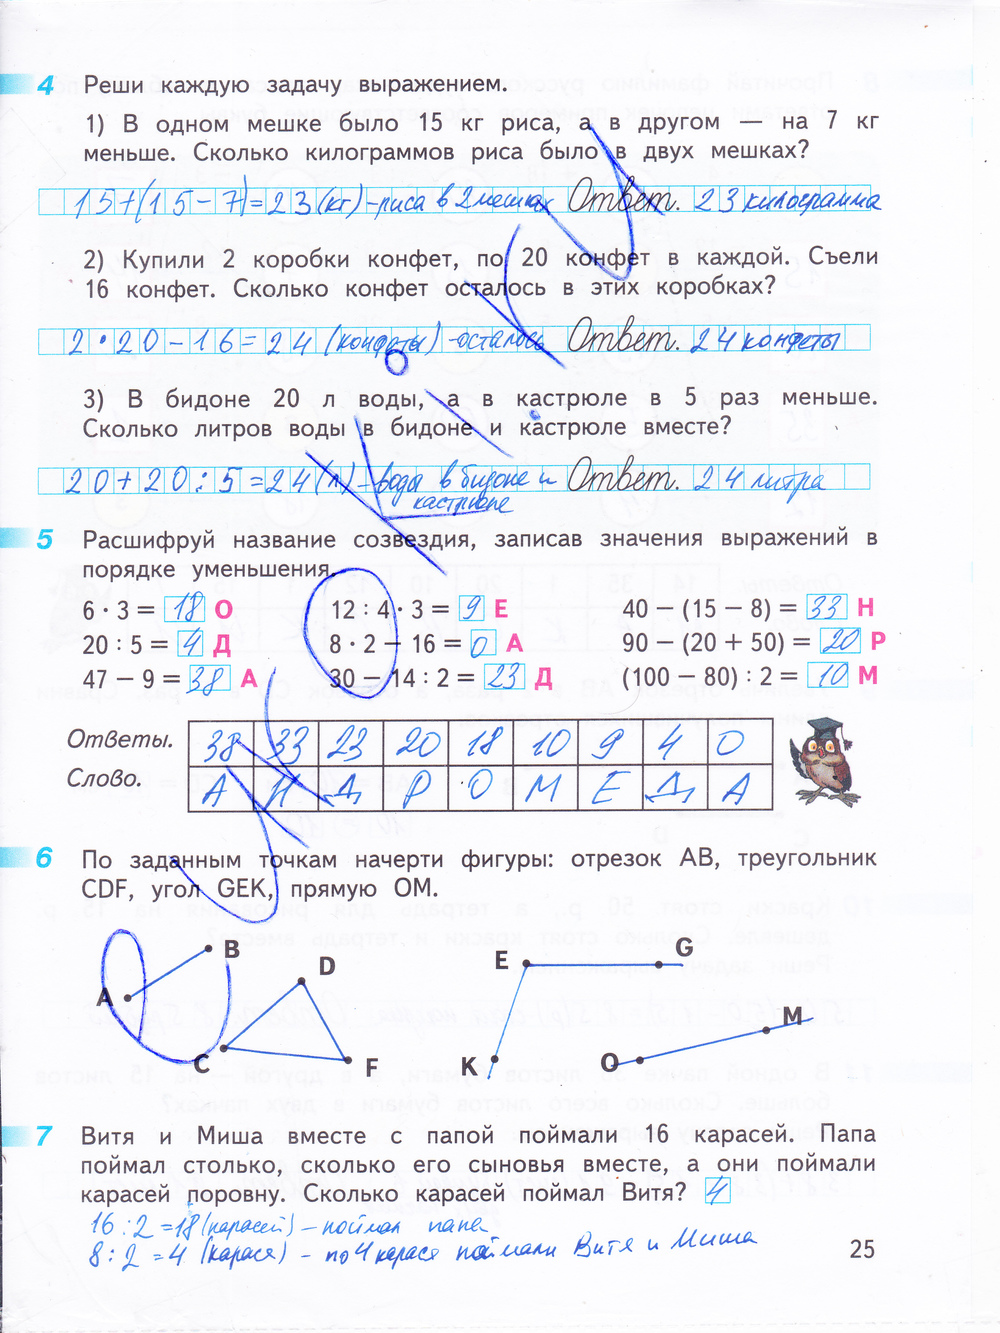 4 Реши каждую задачу выражением.
1) В одном мешке было 15 кг риса, а в другом — на 7 кг
меньше. Сколько килограммов риса было в двух мешках?
15+(15-7)=23(кг)-риса в 2 мешках Ответ. 23 килограмма
2) Купили 2 коробки конфет, по 20 конфет в каждой. Съели
16 конфет. Сколько конфет осталось в этих коробках?
2·20-16=24 (конфеты)-осталось Ответ. 24 конфеты
3) В бидоне 20 л воды, а в кастрюле в 5 раз меньше.
Сколько литров воды в бидоне и кастрюле вместе?
20+20:5=24(л)-воды в бидоне и Ответ. 24 литра
кастрюле
5 Расшифруй название созвездия, записав значения выражений в
порядке уменьшения.
6 · 3 = 18 О 12 : 4 · 3 = 9 Е 40 − (15 − 8) = 33 Н
20 : 5 = 4 Д 8 · 2 − 16 = 0 А 90 − (20 + 50) = 20 Р
47 − 9 = 38 А 30 − 14 : 2 = 23 Д (100 − 80) : 2 = 10 М
Ответы. 38 33 23 20 18 10 9 4 0
Слово. А Н Д Р О М Е Д А
6 По заданным точкам начерти фигуры: отрезок АВ, треугольник
CDF, угол GEK, прямую ОМ.
A B C D F E G K O M
7 Витя и Миша вместе с папой поймали 16 карасей. Папа
поймал столько, сколько его сыновья вместе, а они поймали
карасей поровну. Сколько карасей поймал Витя? 4
16:2=8(карасей)-поймал папа
8:2=4 (карася) - по 4 карася поймали Витя и Миша
25